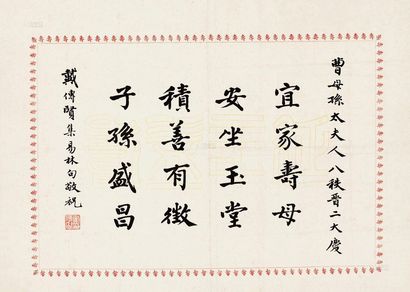 曹母孫太夫人八秩晉二大慶
宜家壽母
安坐玉堂
積善有徵
子孫盛昌
戴傳賢集易林句敬祝